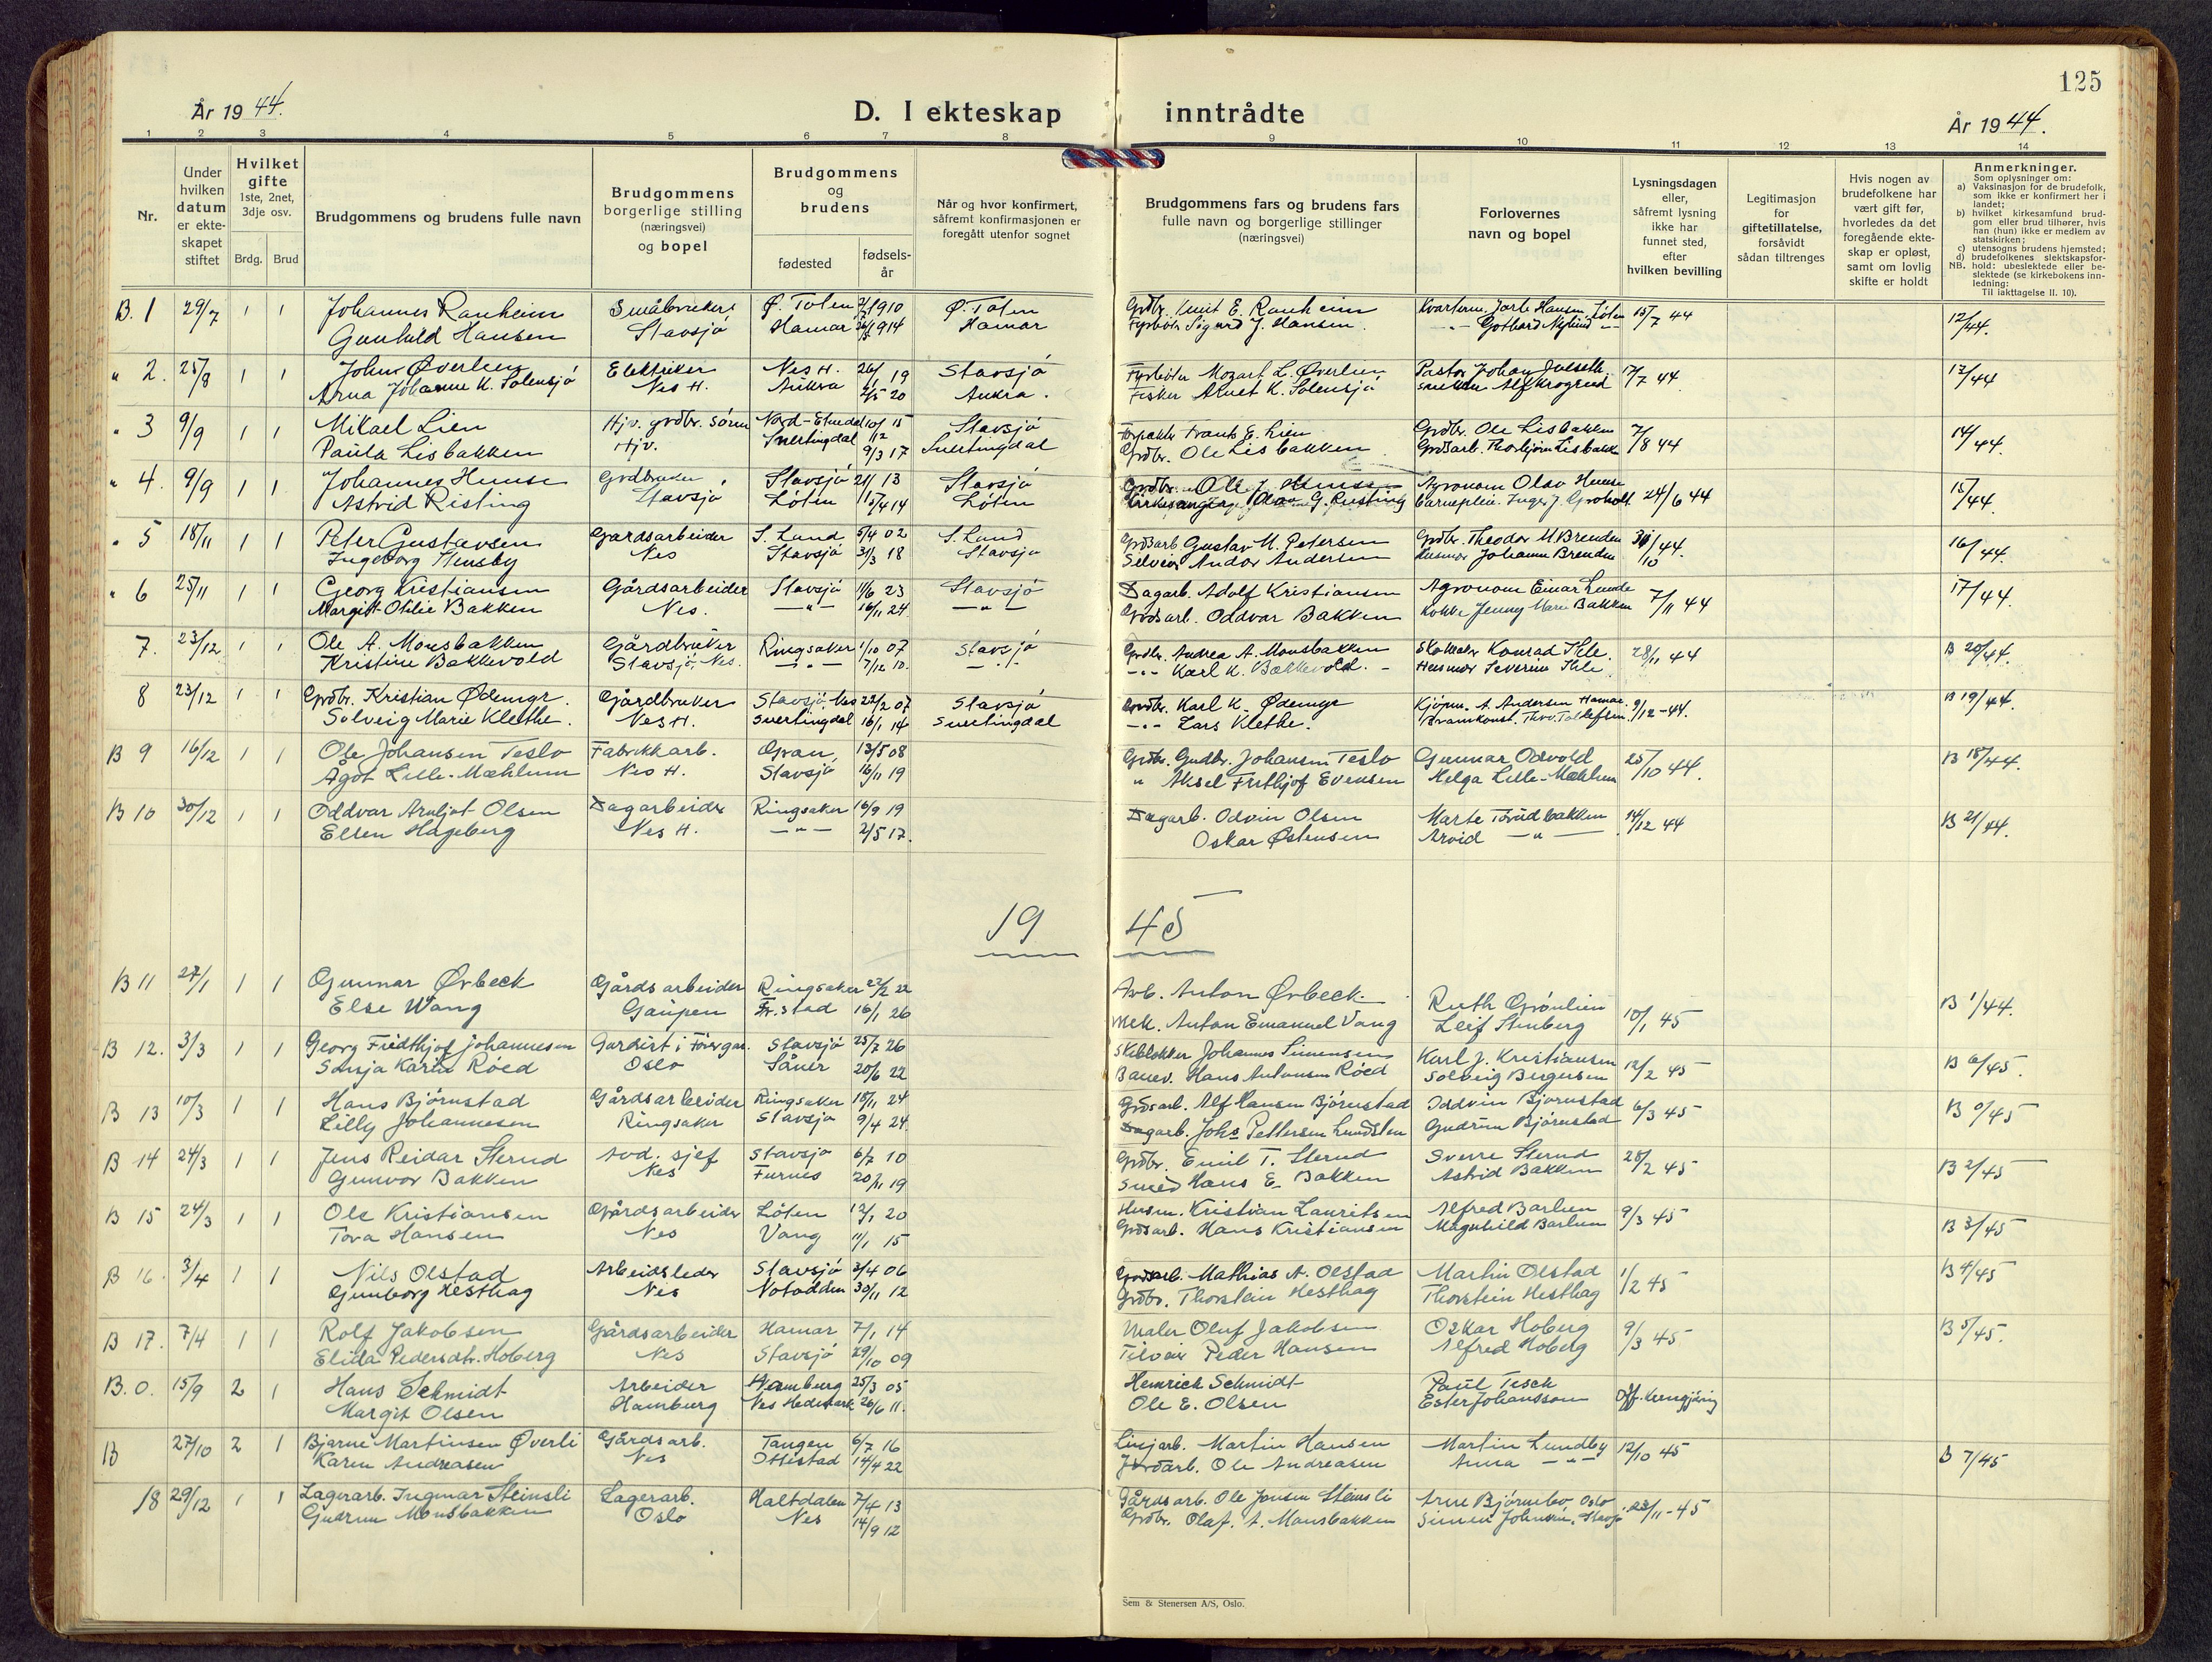 125
År 1944.
D. I ekteskap inntrådte
År 1944.
1 2 3 4 5 6 7 8 9 10 11 12 13 14
Nr.
Under hvilken datum er ekte-skapet stiftet
Hvilket gifte 1ste, 2net, 3dje osv.
Brdg. Brud
Brudgommens og brudens fulle navn
Brudgommens borgerlige stilling (næringsvei) og bopel
Brudgommens og brudens
fødested
fødsels-år
Når og hvor konfirmert, såfremt konfirmasjonen er foregått utenfor sognet
Brudgommens fars og brudens fars fulle navn og borgerlige stillinger (næringsvei)
Forlovernes navn og bopel
Lysningsdagen eller, såfremt lysning ikke har funnet sted, efter hvilken bevilling
Legitimasjon for giftetillatelse, forsåvidt sådan tiltrenges
Hvis nogen av brudefolkene har vært gift før, hvorledes da det foregående ekte-skap er opløst, samt om lovlig skifte er holdt
Anmerkninger.
Som oplysninger om:
a) Vaksinasjon for de brudefolk, som ikke er konfirmert her i landet;
b) hvilket kirkesamfund brud-gom eller brud tilhører, hvis han (hun) ikke er medlem av statskirken;
c) utensogns brudens hjemsted;
d) brudefolkenes slektskapsfor-hold: ubeslektede eller be-slektede (se kirkebokens inn-ledning:
NB.
Til iakttagelse II. 10).
B. 1 29/7 1 1 Johannes Ranheim Småbruker Ø. Toten 1910 Ø. Toten Grdbr. E. Ranheim Jarle Hansen, Løten 15/7 44 12/44.
Gunhild Hansen Stavsjø Hamar 1914 Hamar Fyrbøter Sigurd J. Hansen. Gothard Nylund
" 2. 25/8 1 1 John Øverlien Elektriker Nes H. 26/1 19 Stavsjø Fyrbøter Mozart L. Øverlien Pastor Johan Julseth 17/7 44 13/44
Arna Johanne K. Solensjø Nes H. Aukra 2/5 20 Aukra. Fisker K. Solensjø snekker Alf Krogrud
" 3 9/9 1 1 Mikael Lien Hjv. grdbr. sønn Nord-Etnedal 15 Stavsjø Frants E. Lien Grdbr. Ole Lisbakken 7/8 44 14/44.
Paula Lisbakken Hjv. Snertingdal 9/3 17 Snertingdal Grdbr. Ole Lisbakken Grdsarb. Thorbjørn Lisbakken
" 4. 9/9 1 1 Johannes Hemse Grdbruker Stavsjø 2/1 13 Stavsjø Grdbr. Ole J. Hemse Agronom Olav Hemse 24/6 44 15/44.
Astrid Risting Stavsjø Løten 15/4 14 Løten Kirkesanger Olav G. Risting Barnepleie. Inger J. Grobolt
" 5 18/11 1 1 Peter Gustavsen Gardsarbeider S. Land 5/4 02 S. Land Grdsarb. Gustav M. Petersen Grdbr. Theodor M Brenden 31/10 44. 16/44.
Ingeborg Stensby Nes Stavsjø 31/3 18 Stavsjø Andor Andersen Husmor Johanne Brenden
" 6 25/11 1 1 Georg Kristiansen Gårdsarbeider Stavsjø 11/6 23 Stavsjø Dagarb. Adolf Kristiansen Agronom Einar Lunde 7/11 44 17/44.
Margitt Otilie Bakken Nes. — " — 16/11 24 — " — Grdsarb. Oddvar Bakken Kokke Jenny Marie Bakken
7. 23/12 1 1 Ole A. Monsbakken Gårdbruker Ringsaker 1/10 07 Stavsjø Grdbr. Andrea A. Monsbakken Skomaker Konrad Ihle. 28/11 44 B 20/44.
Kristine Bakkevold Stavsjø, Nes. — " — 7/12 10. — " — — " — Karl K. Bakkevold. Husmor Severine Ihle.
8 23/12 1 1 Grdbr. Kristian Ødemyr. Gårdbruker Stavsjø, Nes 22/2 07 Stavsjø Grdbr. Karl K. Ødemyr Kjøpm. A. Andersen Hamar. 9/12 - 44. B 19/44.
Solveig Marie Klethe. Nes H. Snertingdal 16/1 14 Snertingdal — " — Lars Klethe. Thv. Tollefsen
B 9 16/12 1 1 Ole Johansen Teslo Fabrikkarb. Gran 13/5 08 Grdbr. Gudbr. Johansen Teslo Gunnar Odsvold 25/10 44. B 18/44.
Ågot Lille-Mæhlum Nes H. Stavsjø 16/11 19 " Aksel Frithjof Evensen Helga Lille-Mæhlum
B 10 30/12 1 1 Oddvar Arnljot Olsen Dagarbeider Ringsaker 16/9 19 Dagarb. Odvin Olsen Marte Torudbakken 14/12 44 B 21/44.
Ellen Hageberg Nes H. — " — 2/5 17. Oskar Østensen Arvid — " —
19 45
B 11 27/1 1 1 Gunnar Ørbeck Gårdsarbeider Ringsaker 22/2 22 Arb. Anton Ørbeck Ruth Grønlien 10/1 45 B 1/44.
Else Wang Gaupen Fr.stad 16/1 26 Mek. Anton Emanuel Vang Leif Stenberg
B 12. 3/3 1 1 Georg Fridthjof Johannesen Gardist i Førergar. Stavsjø 25/7 26 Johannes Simensen Karl J. Kristiansen 12/2 45 B 6/45.
Sonja Karin Røed Oslo Såner 20/6 22 Banev. Hans Antonsen Røed Solveig Bergersen
B 13 10/3 1 1 Hans Bjørnstad Gårdsarbeider Ringsaker 15/11 24 Grdsarb. Alf Hansen Bjørnstad Oddvin Bjørnstad 6/3 45 B 0/45
Lilly Johannesen Ringsaker Stavsjø 9/4 24. Dagarb. Johs Pettersen Lundsten Gudrun Bjørnstad
B 14 24/3 1 1 Jens Reidar Sterud Avd. sjef Stavsjø 6/7 10 Grdbr. Emil T. Sterud Sverre Sterud 28/2 45 B 2/45
Gunvor Bakken Nes Furnes 20/11 19 Smed Hans E. Bakken Astrid Bakken
B 15 24/3 1 1 Ole Kristiansen Gårdsarbeider Løten 12/1 20 Husm. Kristian Lauritsen Alfred Barlien 9/3 45 B 3/45
Tora Hansen Nes Vang 11/1 15 Grdsarb. Hans Kristiansen Magnhild Barlien
B 16. 3/4 1 1 Nils Olstad Arbeidsleder Stavsjø 3/4 06 Grdsarb. Mathias A. Olstad Martin Olstad 1/2 45 B 4/45
Gunborg Hesthag Nes Notodden 30/11 12 Grdbr. Thorstein Hesthag Thorstein Hesthag
B 17. 7/4 1 1 Rolf Jakobsen Gårdsarbeider Hamar 7/1 14 Maler Oluf Jakobsen Oskar Hoberg 9/3 45 B 5/45.
Elida Pedersdtr. Hoberg Nes Stavsjø 29/10 09 Peder Hansen Alfred Hoberg
B. 0. 15/9 2 1 Hans Schmidt Arbeider Hamburg 25/3 05 Henrich Schmidt Paul Tesch Off. kunngjøring
Margit Olsen Hamburg Nes Hedmark 26/6 11. Ole E. Olsen Ester Johansson
B 27/10 2 1 Bjarne Martinsen Øverli Gårdsarb. Tangen 6/7 16 Linjarb. Martin Hansen Martin Lundby 12/10 45 B 7/45
Karen Andreasen Nes Ottestad 14/4 22 Jordarb. Ole Andreasen Anna — " —
18 29/12 1 1 Lagerarb. Ingmar Steinsli Lagerarb. Haltdalen 7/4 13 Gårdsarb. Ole Jonsen Steinsli Arne Bjørnebo, Oslo 23/11 - 45
Gudrun Monsbakken Oslo Nes 14/9 12 Grdbr. Olaf. A. Monsbakken Simen Johnsen, Stavsjø
Sem & Stenersen A/S, Oslo.